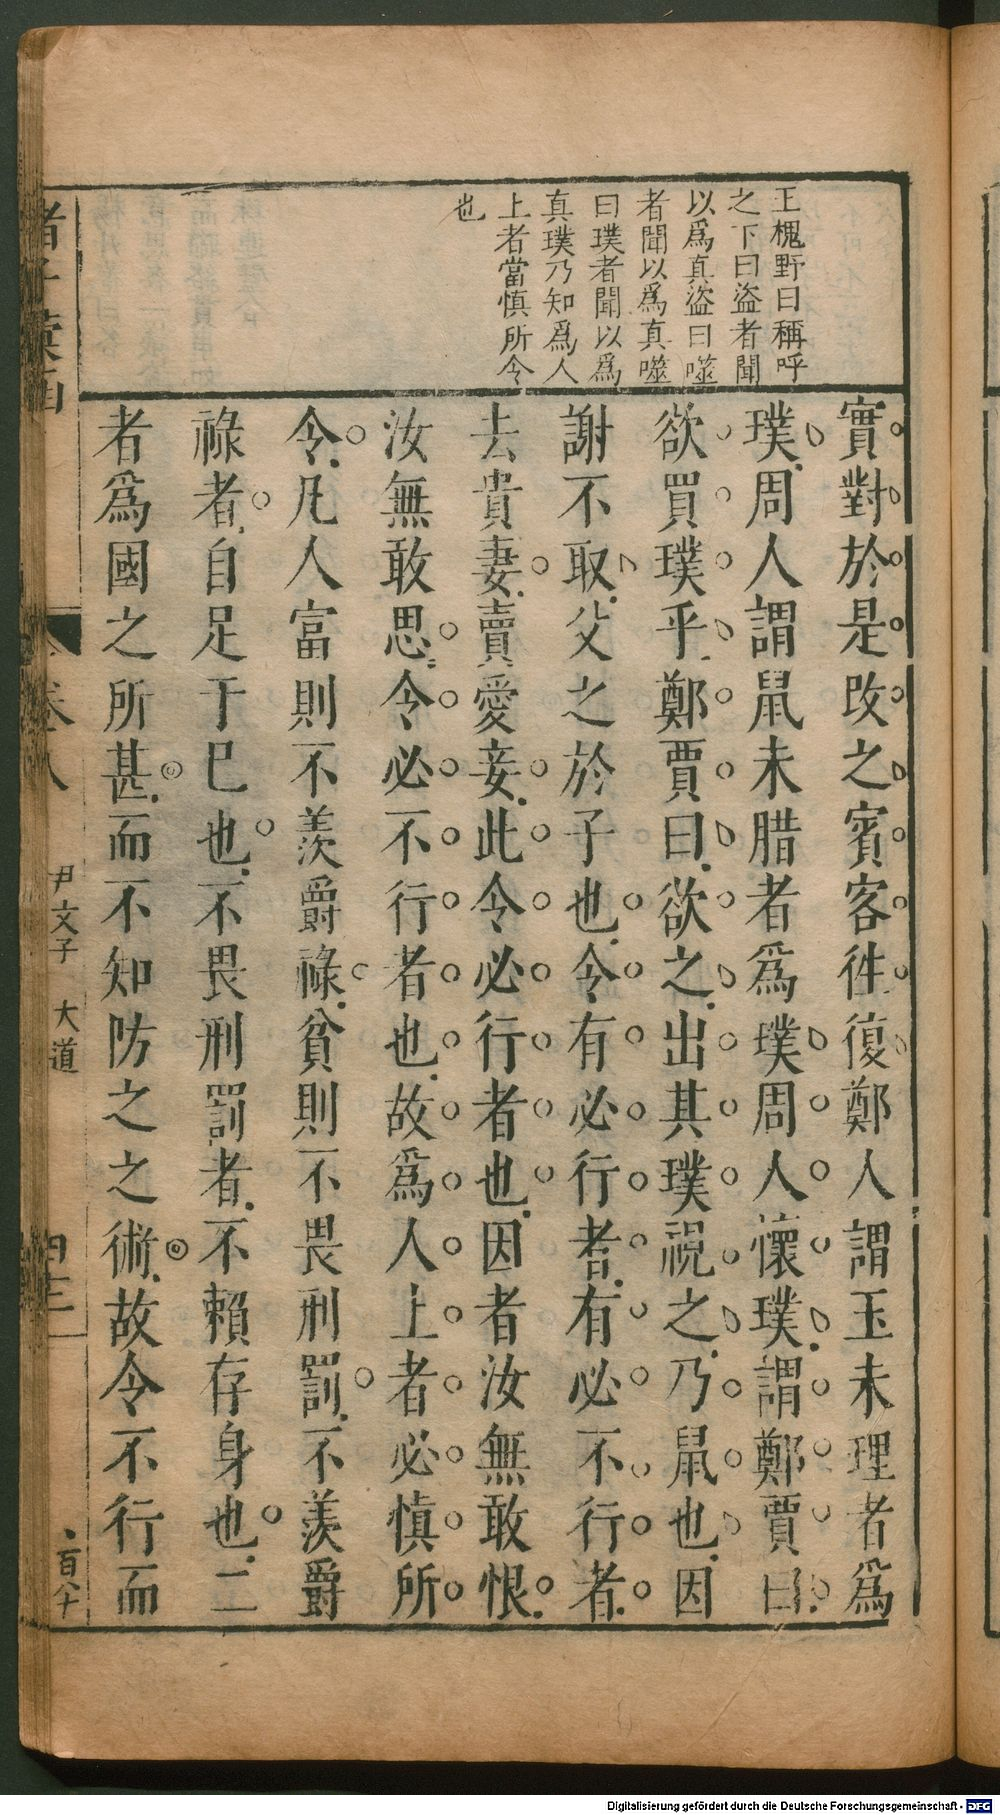 王槐野曰稱呼
之下曰盜者聞
以爲真盜曰噬
者聞以爲真噬
曰璞者聞以爲
真璞乃知爲人
上者當慎所令
也
實對於是改之賓客徃復鄭人謂玉未理者爲
璞周人謂鼠未腊者爲璞周人懷璞謂鄭賈曰
欲買璞乎鄭賈曰欲之出其璞視之乃鼠也因
謝不取父之於子也令有必行者有必不行者
去貴妻賣愛妾此令必行者也因者汝無敢恨
汝無敢思令必不行者也故爲人上者必慎所
令凡人富則不羨爵祿貧則不畏刑罰不羨爵
祿者自足于巳也不畏刑罰者不賴存身也二
者爲國之所甚而不知防之之術故令不行而
諸子彙函
卷八
尹文子 大道
四十三
Digitalisierung gefördert durch die Deutsche Forschungsgemeinschaft - DFG